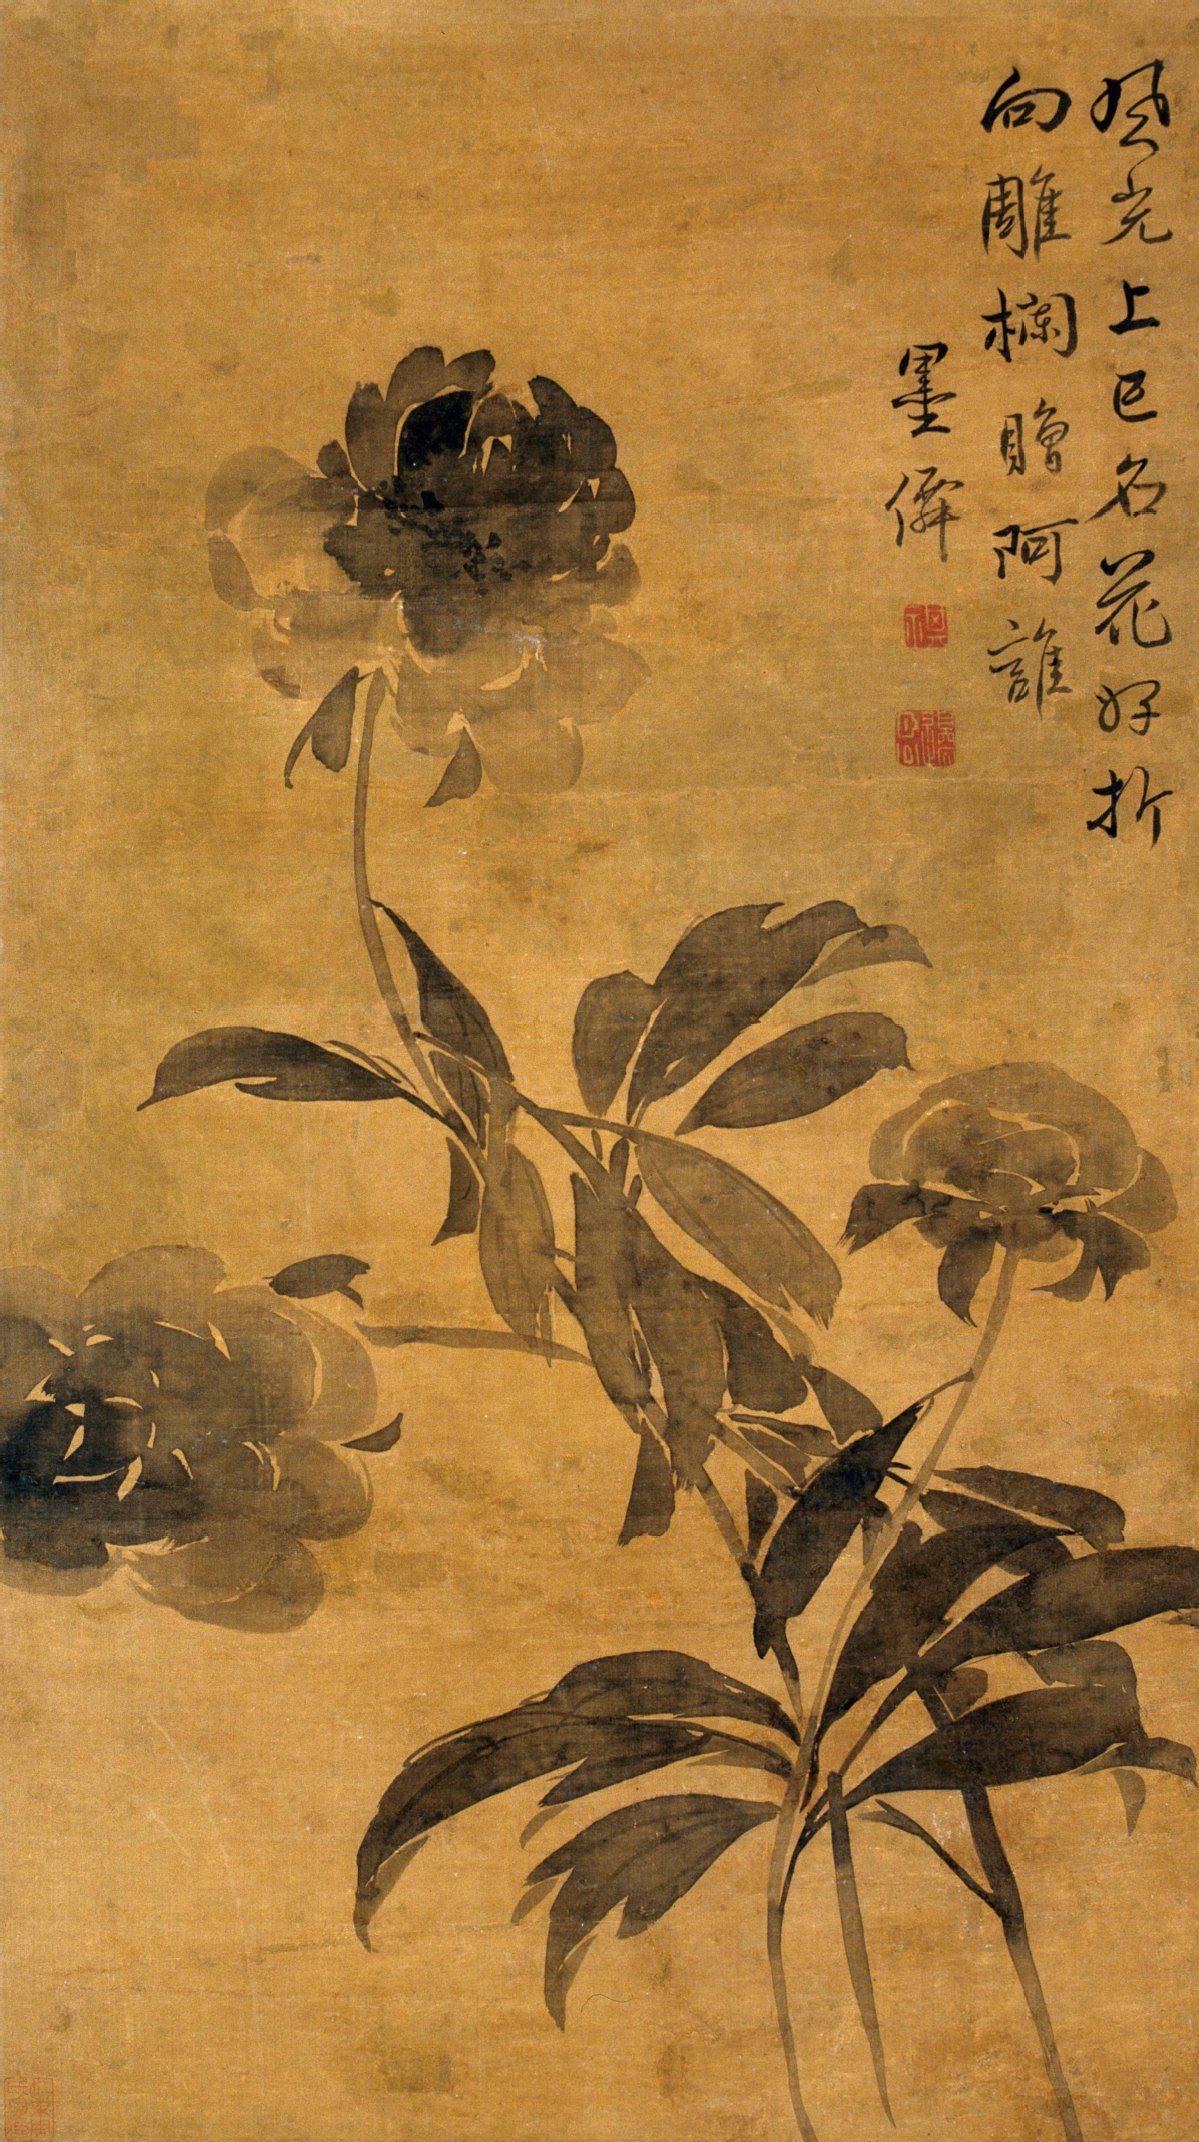 风光上巳名花好折
向雕欄贈阿誰
墨僊